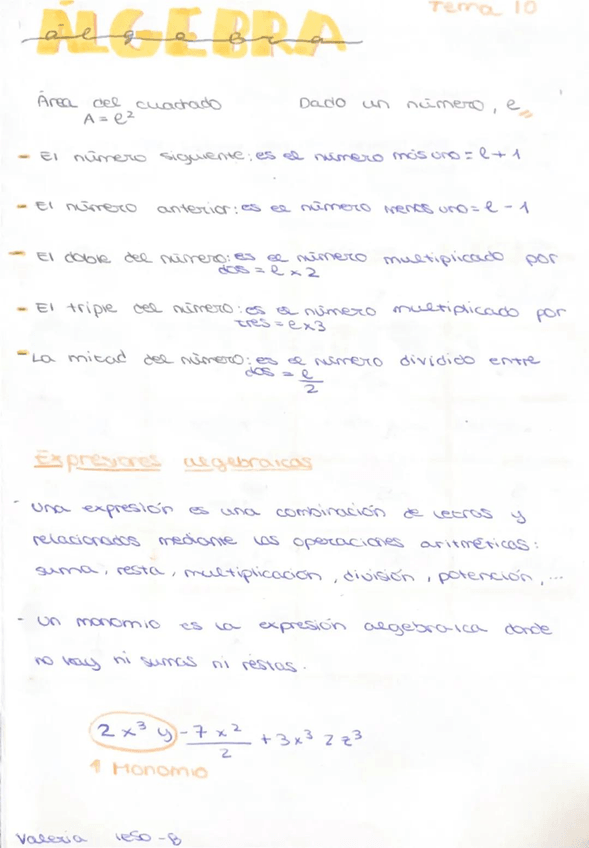 Tema 10
ÁLGEBRA
álgebra
Área del cuadrado Dado un número, e
A = e²
- El número siguiente: es el número más uno = e + 1
- El número anterior: es el número menos uno = e - 1
- El doble del número: es el número multiplicado por
dos = e x 2
- El triple del número: es el número multiplicado por
tres = e x 3
- La mitad del número: es el número dividido entre
dos = e/2
Expresiones algebraicas
- Una expresión es una combinación de letras y
relacionados mediante las operaciones aritméticas:
suma, resta, multiplicación, división, potención, ...
- Un monomio es la expresión algebraica donde
no hay ni sumas ni restas.
2x³y - 7x²/2 + 3x³ 2z³
1 Monomio
Valeria 1ESO-B